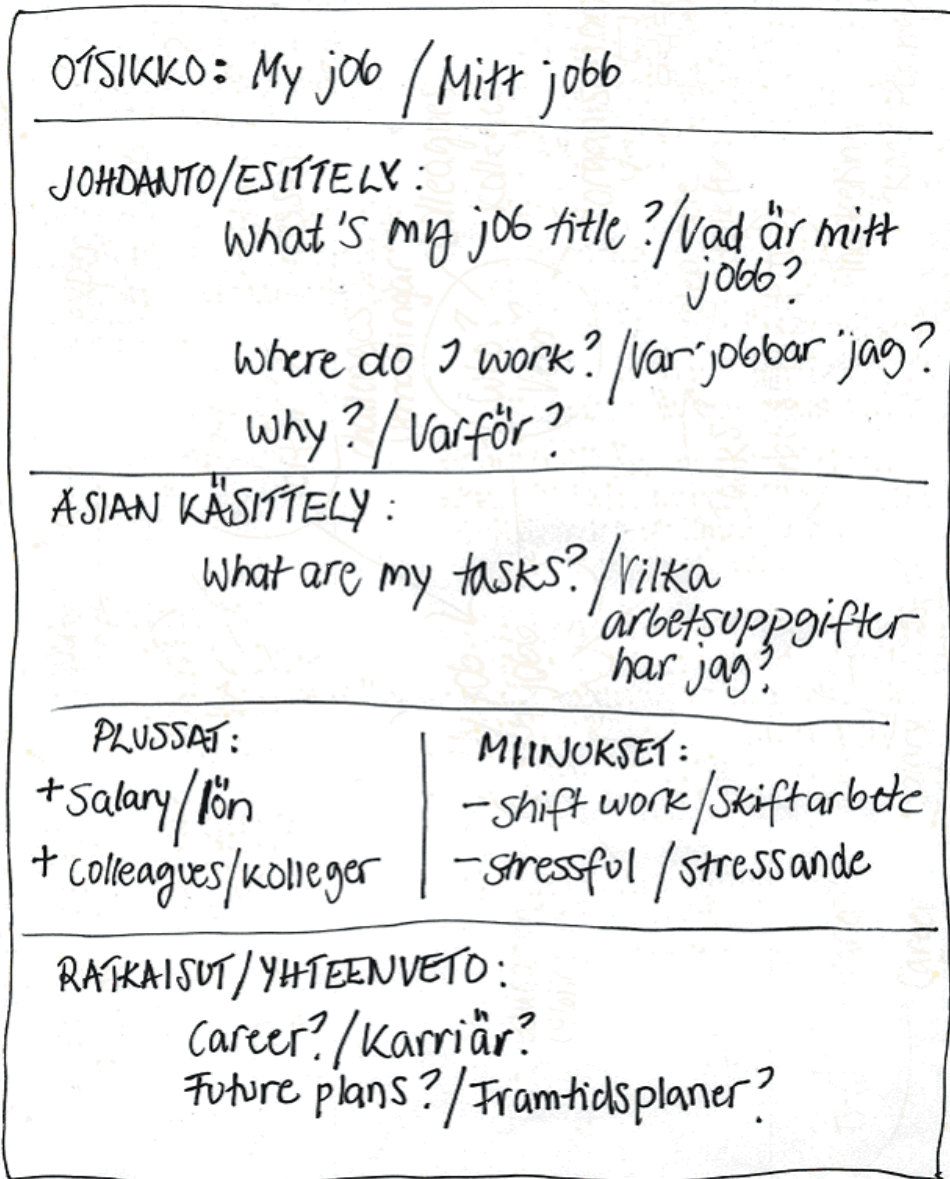 OTSIKKO: My job / Mitt jobb
JOHDANTO/ESITTELY:
What's my job title?/Vad är mitt
jobb?
Where do I work?/Var jobbar jag?
Why?/Varför?
ASIAN KÄSITTELY:
What are my tasks?/Vilka
arbetsuppgifter
har jag?
PLUSSAT:
+ Salary/lön
+ Colleagues/kolleger
MIINUKSET:
- Shift work/Skiftarbete
- Stressful/stressande
RATKAISUT/YHTEENVETO:
Career?/Karriär?
Future plans?/Framtidsplaner?